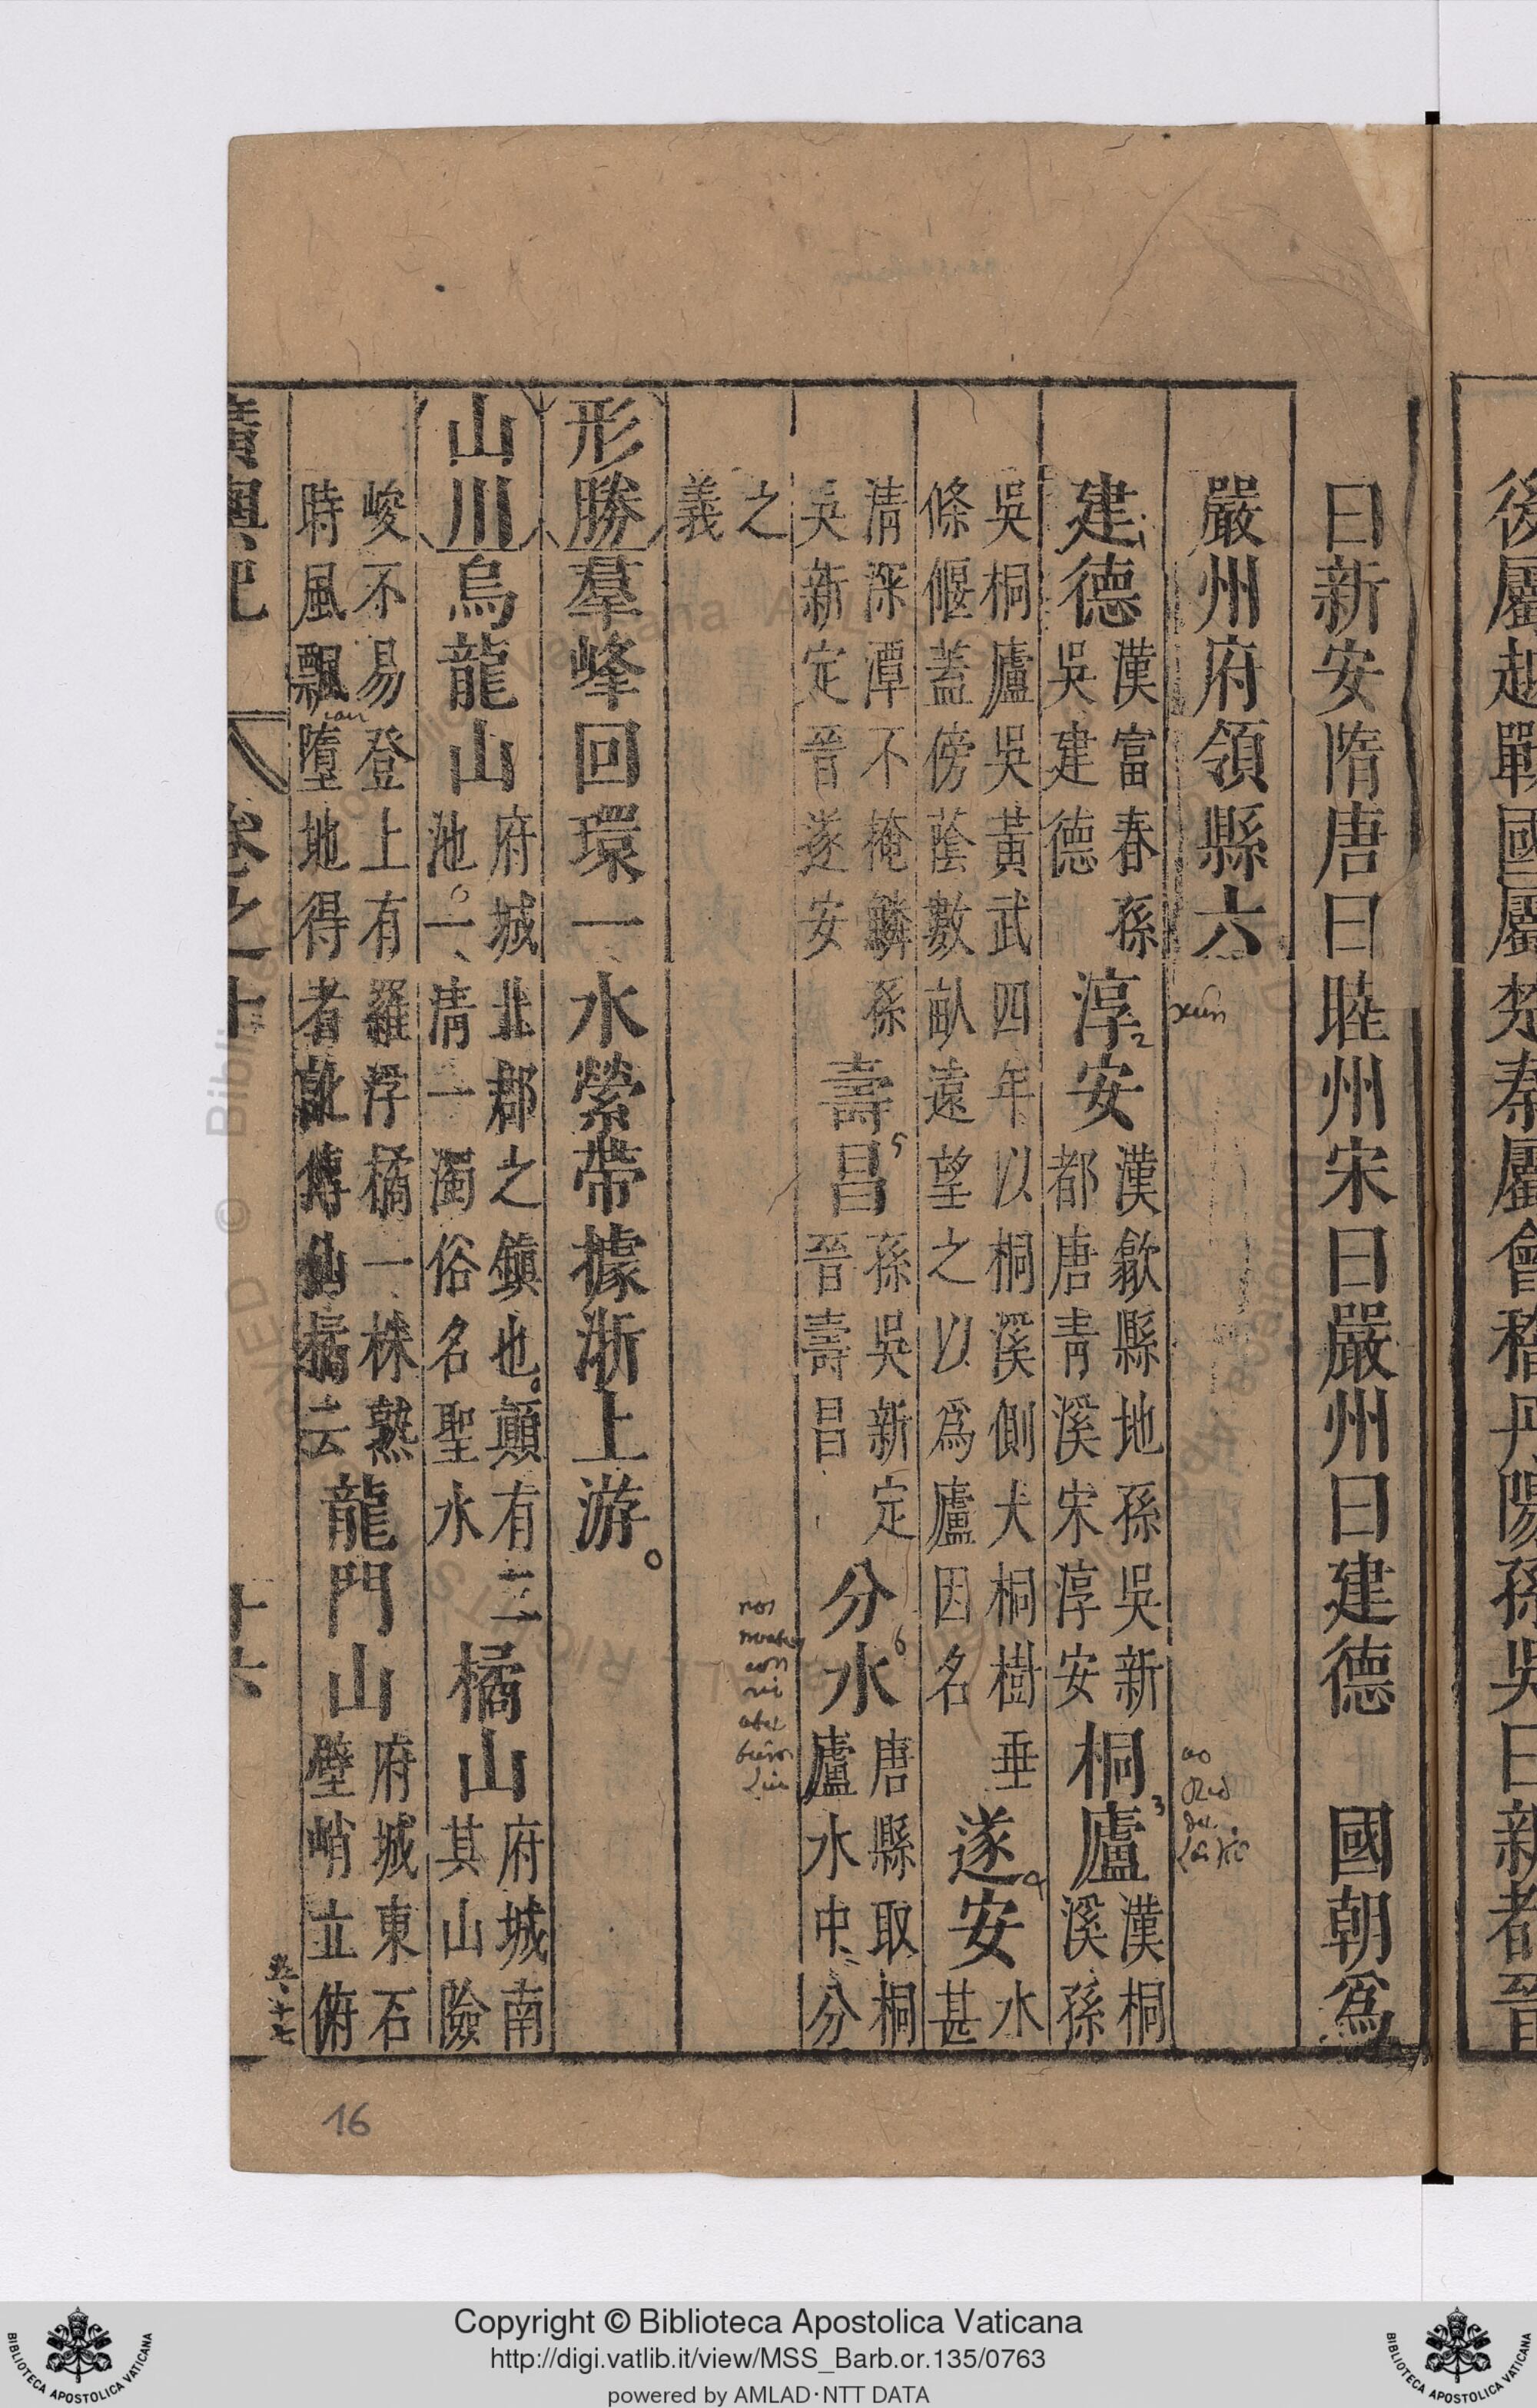 後屬越戰國屬楚秦屬會稽丹陽孫吳曰新都晉
曰新安隋唐曰睦州宋曰嚴州曰建德　國朝爲
嚴州府領縣六
xun
建德 漢富春孫吳建德 淳安 漢歙縣地孫吳新都唐青溪宋淳安 桐廬 漢桐溪孫
吳桐廬吳黃武四年以桐溪側犬桐樹垂條偃蓋傍蔭數畝遠望之以爲廬因名 遂安 水甚
清深潭不掩鱗孫吳新定晉遂安 壽昌 孫吳新定晉壽昌 分水 唐縣取桐廬水中分
之義
形勝 羣峰回環一水縈帶據浙上游
山川 烏龍山 府城北郡之鎮也顛有二池一清一濁俗名聖水 橘山 府城南其山險
峻不易登上有羅浮橘一株熟時風飄墮地得者訛傳仙橘云 龍門山 府城東石壁峭立俯
廣輿記 卷之十 十六
1
2
3
5
6
16
Copyright © Biblioteca Apostolica Vaticana
http://digi.vatlib.it/view/MSS_Barb.or.135/0763
powered by AMLAD·NTT DATA
BIBLIOTECA APOSTOLICA VATICANA
BIBLIOTECA APOSTOLICA VATICANA